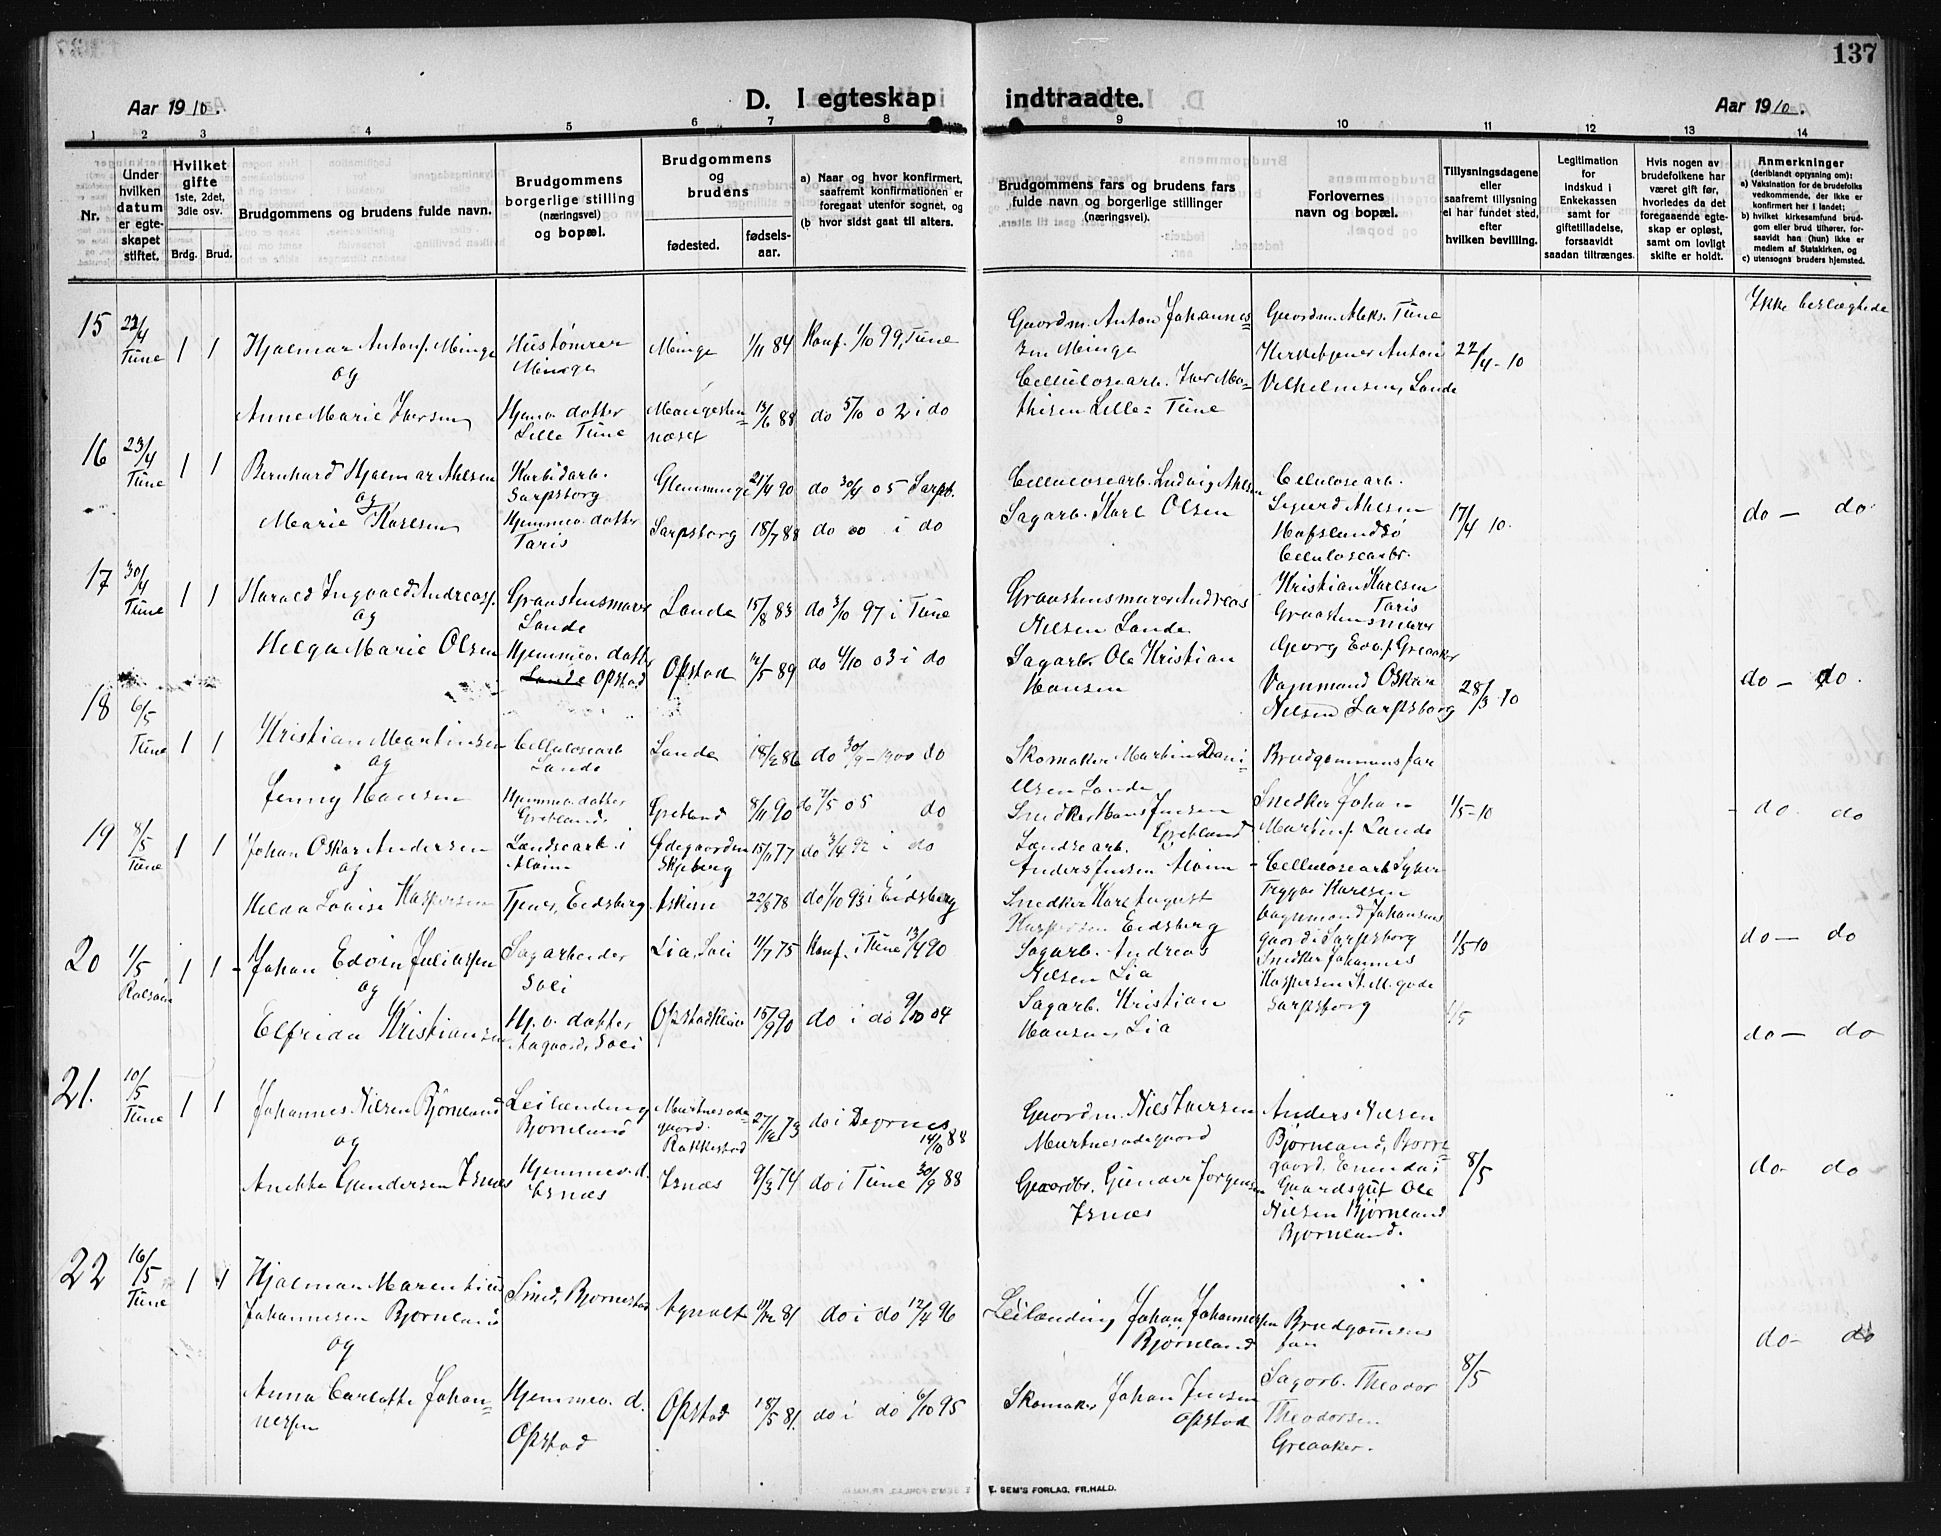 137
Aar 1910.
D. I egteskap indtraadte.
Aar 1910.
1 2 3 4 5 6 7 8 9 10 11 12 13 14
Nr.
Under hvilken datum er egteskapet stiftet.
Hvilket gifte 1ste, 2det, 3die osv.
Brdg. Brud.
Brudgommens og brudens fulde navn.
Brudgommens borgerlige stilling (næringsvei) og bopæl.
Brudgommens og brudens
fødested.
fødselsaar.
a) Naar og hvor konfirmert, saafremt konfirmationen er foregaat utenfor sognet, og
(b hvor sidst gaat til alters.
Brudgommens fars og brudens fars fulde navn og borgerlige stillinger (næringsvei).
Forlovernes navn og bopæl.
Tillysningsdagene eller saafremt tillysning ei har fundet sted, efter hvilken bevilling.
Legitimation for indskud i Enkekassen samt for giftetilladelse, forsaavidt saadan tiltrænges.
Hvis nogen av brudefolkene har været gift før, hvorledes da det foregaaende egteskap er opløst, samt om lovligt skifte er holdt.
Anmerkninger (deriblandt opysning om):
a) Vaksination for de brudefolks vedkommende, der ikke er konfirmert her i landet;
b) hvilket kirkesamfund brudgom eller brud tilhører, forsaavidt han (hun) ikke er medlem af Statskirken, og
c) utensogns bruders hjemsted.
15 22/4 Tune 1 1 Hjalmar Antonf. Minge Hustømrer Minge Minge 1/11 84 Konf. 1/10 99, Tune Gaardm. Anton Johannessen Minge Gaardm. Aleks. Tune 22/4-10 Ikke beslægtede
og
Kirketjener Anton Vilhelmsen, Lande
Anne Marie Iversen Hjemv. datter Lille Tune 13/6 88 do 5/10 02 i do Cellulosearb. Iver Mathisen Lille-Tune
16 23/4 Tune 1 1 Bernhard Hjalmar Ahlsen Karbidarb. Sarpsborg Glemminge 21/4 90 do 30/4 05 Sarpb. Cellulosearb. Ludvig Ahlsen Cellulosearb. Sigurd Ahlsen Hafslundsø
og
Marie Karlsen Hjemmev. datter Taris Sarpsborg 18/7 88 do i do Sagarb. Karl Olsen Cellulosearbr. Kristian Karlsen Taris 17/4 10. do - do
17 30/4 Tune 1 1 Harald Ingvald Andreasf. Graastensmurer Lande Lande 15/8 83 do 3/10 97 i Tune Graastensmurer Andreas Nilsen Lande Graastensmurer Georg Edv.f Greaaker
og
Helga Marie Olsen Hjemmev. datter Lande Opstad Opstad 12/5 89 do 4/10 03 i do Sagarb. Ole Kristian Hansen Oskar Nilsen Sarpsborg 28/3 10 do - do.
18 6/5 Tune 1 1 Kristian Martinsen Cellulosearb Lande Lande 18/2 86 do 30/9-1900 do Skomaker Martin Danielsen Lande Brudgommens far
og
Jenny Hansen Hjemmev. datter Gretland Gretland 8/11 90 do 7/5 05 do Snedker Hans Jensen Gretland Snedker Johan Martinf. Lande 1/5-10 do. do
19 8/5 Tune 1 1 Johan Oskar Andersen Landsearb. i Alvim Ødegaarden Skjeberg 15/11 77 do 3/4 92 i do Landsearb. Anders Jensen Alvim Cellulosearb Trygve Karlsen
og
Helda Lovise Kaspersen Tjener, Eidsberg Askim 22/8 78 do 1/10 93 i Eidsberg Snedker Karl August Kaspersen Eidsberg Snedker Johannes Kaspersen St. M. gade Sarpsborg 1/5-10 do - do
20 1/5 Rolsøen 1 1 Johan Edvin Juliussen Sagarbeider Soli Lia, Soli 11/7 75 Konf. i Tune 13/4 90 Sagarb. Andreas Nilsen Lia
og
Elfrida Kristiansen Hj. v. datter Aagaard, Soli Opstadkleiva 15/9 90 do i do 9/10 04 Sagarb. Kristian Hansen, Lia 1/5 do - do
21. 10/5 Tune 1 1 Johannes Nilsen Bjørnland Leilænding Bjørnland Rakkestad 27/12 73 do i Degrnes 14/10 88 Gaardm. Nils Iversen Anders Nilsen Bjørnland,
og
Anekka Gundersen Isnæs Hjemmev. d. Isnæs Isnæs 9/3 74 do i Tune 30/9 88 Gaardbr. Gunder Jørgensen Isnæs Gaardsgut Ole Nilsen Bjørnland Bjørnland. 8/5 do - do
22 16/5 Tune 1 1 Hjalmar Marentius Johannesen Bjørnland Smed, Bjørnestad Agnalt 11/12 81 do i do 12/4 96 Leilænding Johan Johannessen Bjørnland Brudgommens far do - do
og
Anna Carlotte Johannessen Hjemmev. d. Opstad Opstad 18/5 81. do i do 6/10 95 Skomaker Johan Jensen Opstad Sagarb. Theodor Theodorsen Greaaker. 8/5
E. SEM'S FORLAG. FR.HALD.